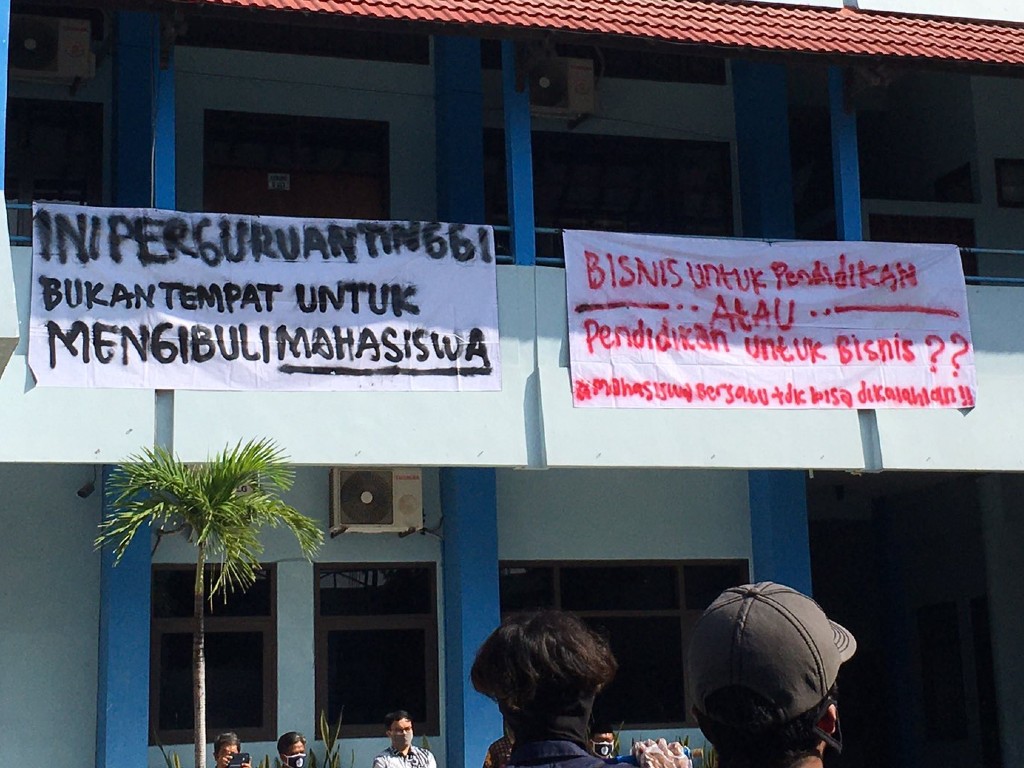 INI PERGURUAN TINGGI
BUKAN TEMPAT UNTUK
MENGIBULI MAHASISWA
BISNIS UNTUK PendidiKAN
ATAU
Pendidikan untuk Bisnis ??
#mahasiswa Bersatu tdk bisa dikalahkan !!